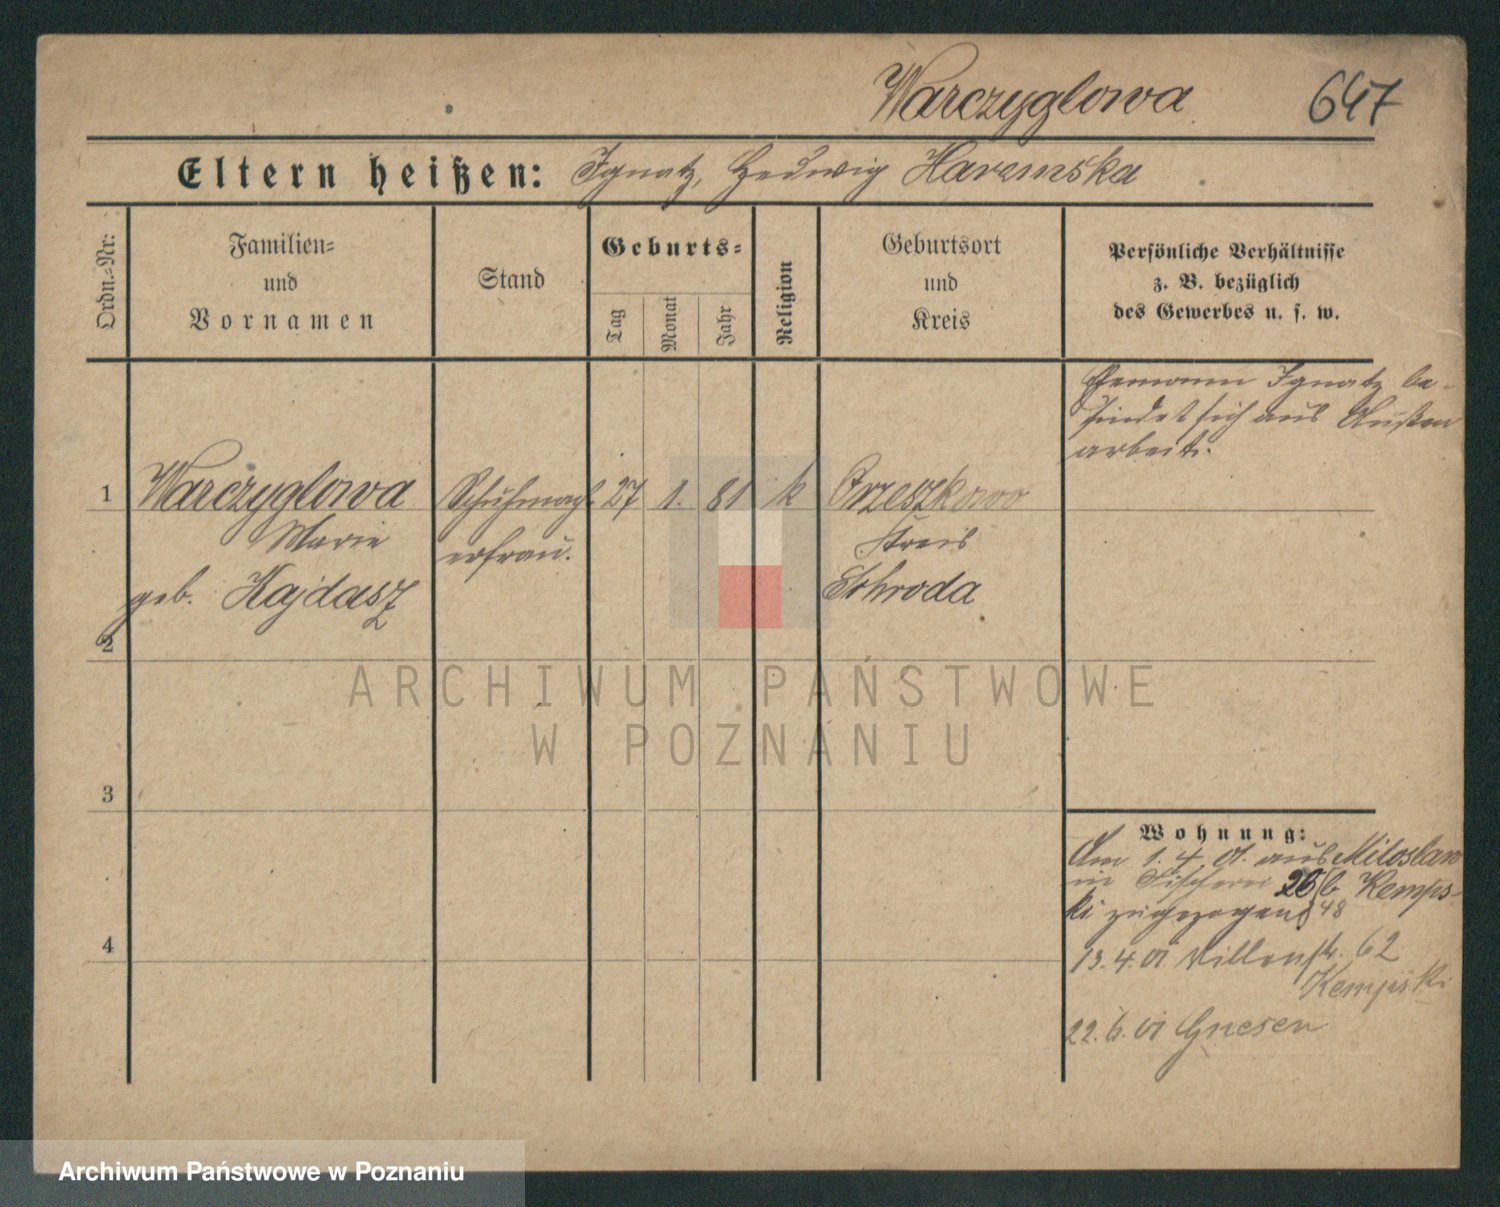 Warczyglowa 647
Eltern heißen: Ignatz, Hedwig Haremska
Ordn.-Nr:
Familien-
und
Vornamen
Stand
Geburts-
Tag
Monat
Jahr
Religion
Geburtsort
und
Kreis
Persönliche Verhältnisse
z. B. bezüglich
des Gewerbes u. s. w.
Ehemann Ignatz be-
findet sich aus Außen
arbeit.
1 Warczyglowa Schuhmach- 27 1. 81 k Orzeszkowo
Marie erfrau. Kreis
geb. Kajdasz Schroda
2
3
4
Wohnung:
Am 1. 4. 01. aus Miloslaw
in Fischerei 26/b Kemps-
ki zugezogen 48
13. 4. 01 Villenstr. 62
Kempski
22. 6. 01 Gnesen
ARCHIWUM PAŃSTWOWE
W POZNANIU
Archiwum Państwowe w Poznaniu